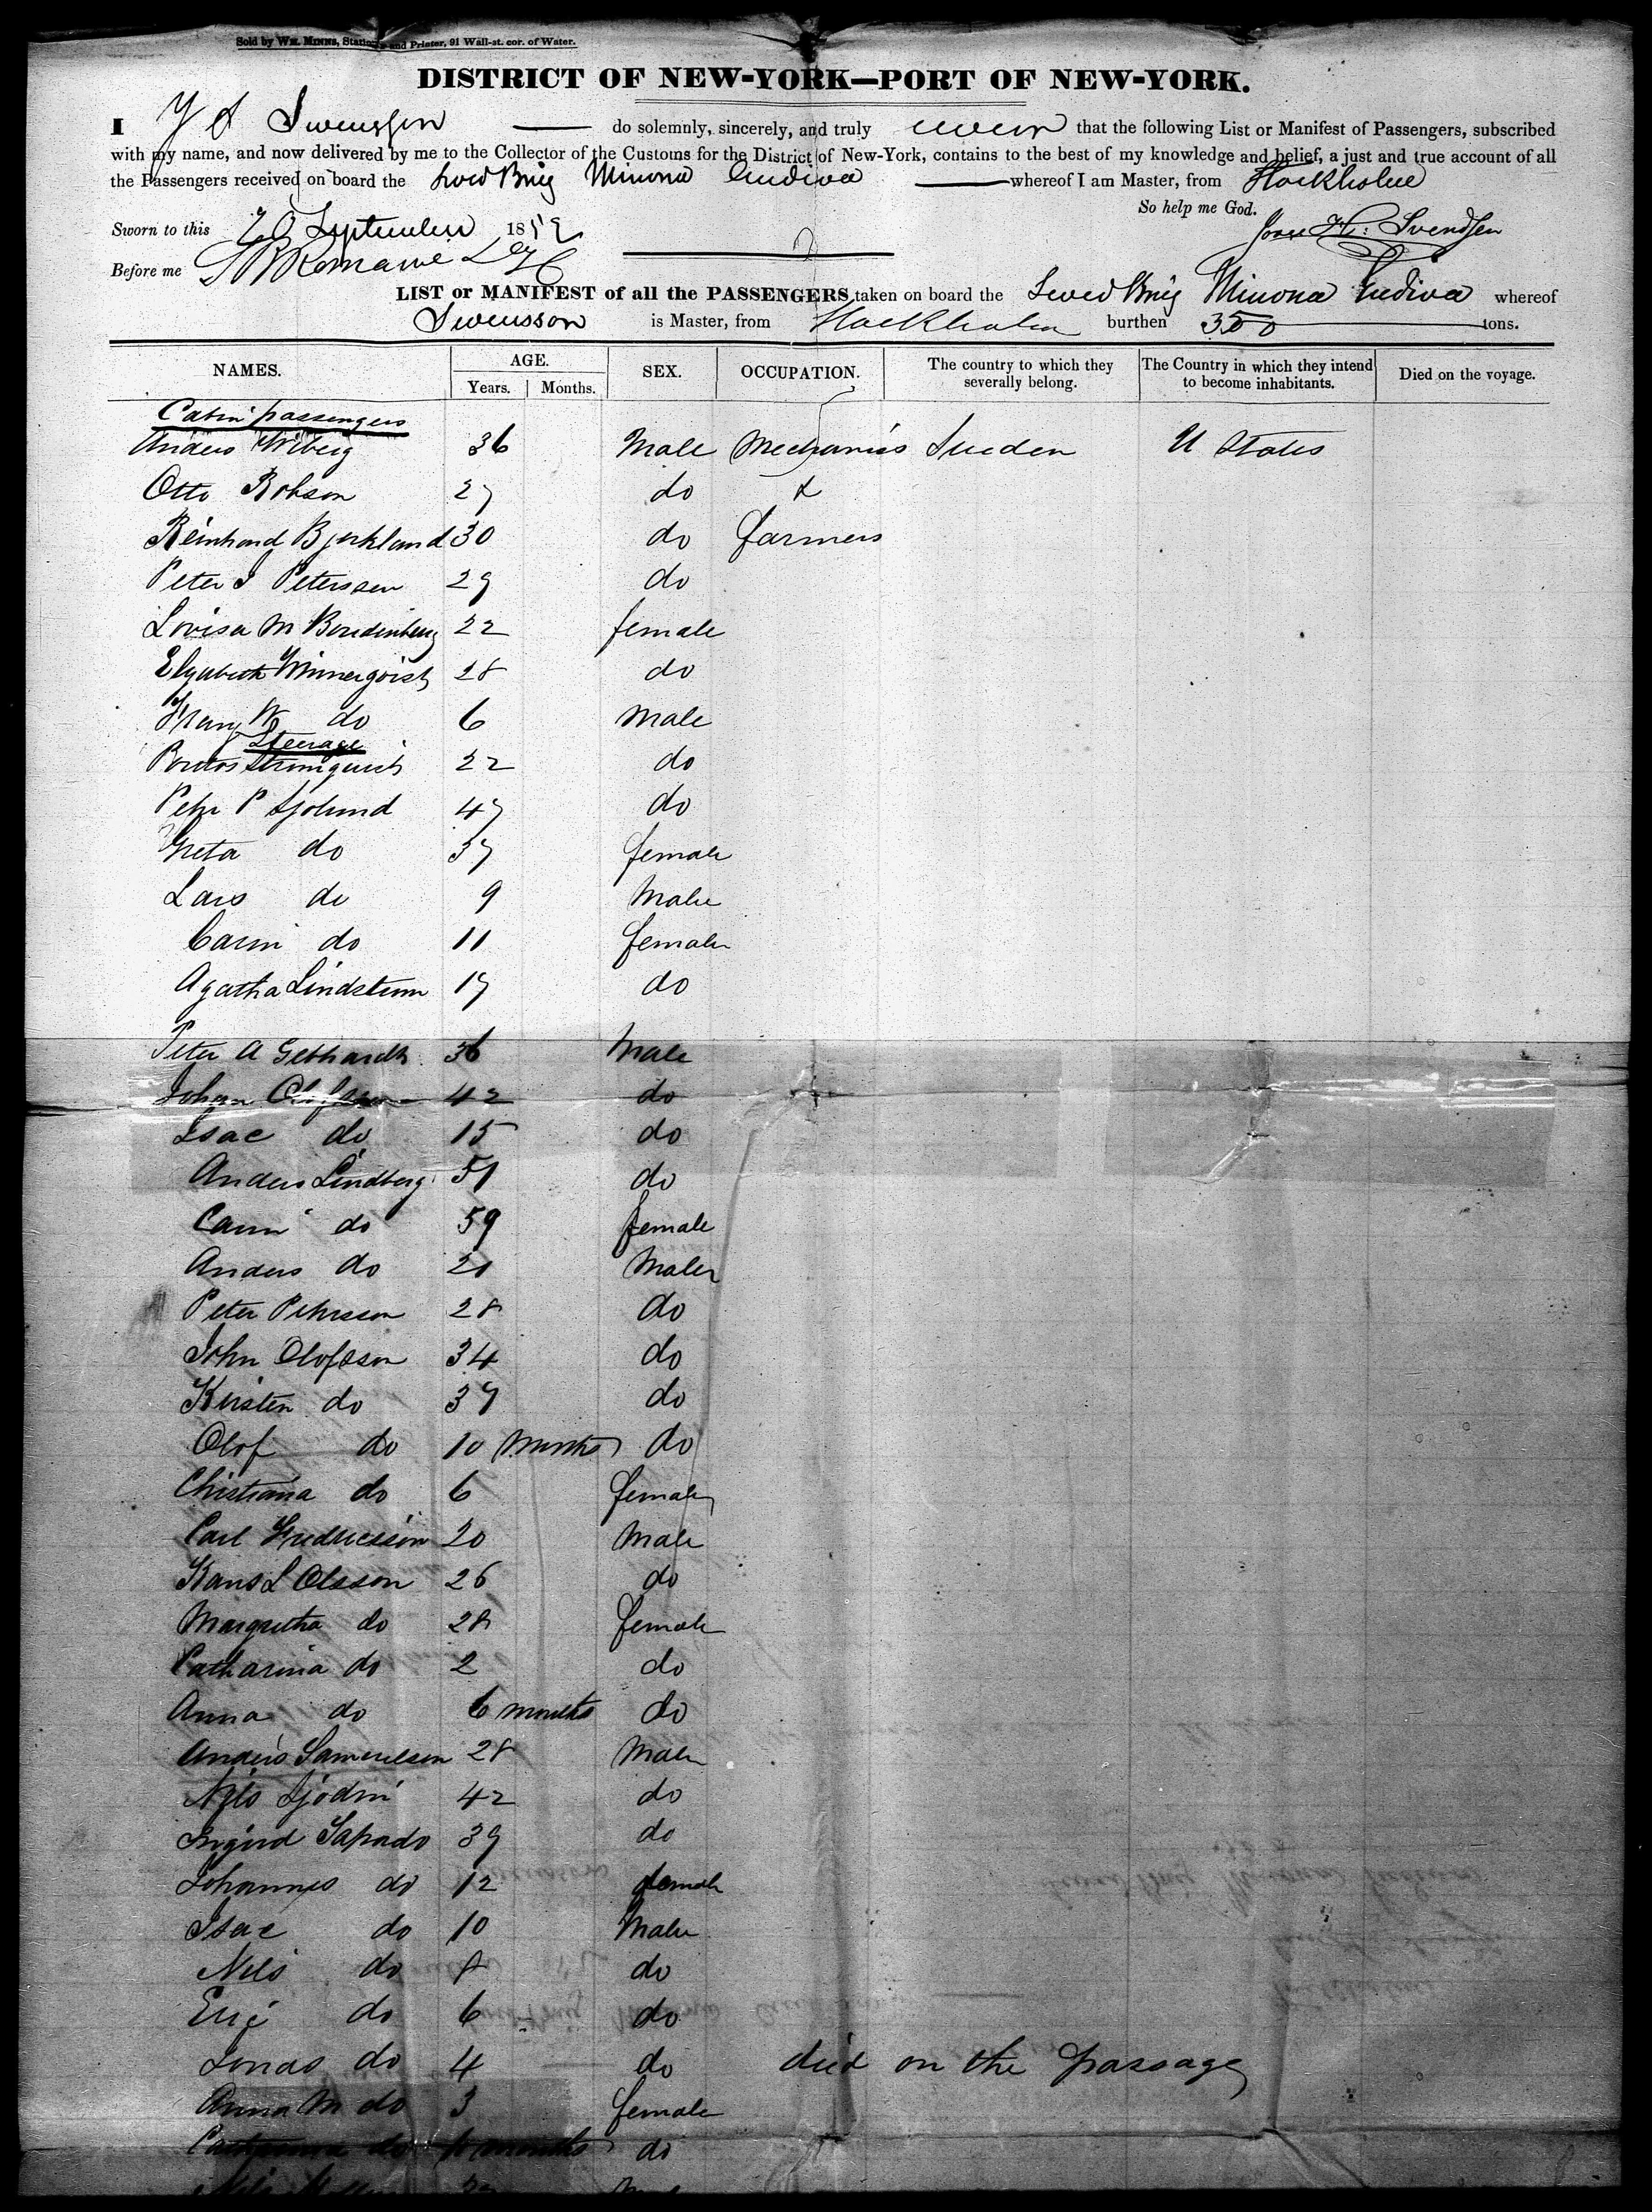 Sold by WM. MINNS, Stationer and Printer, 91 Wall-st. cor. of Water.
DISTRICT OF NEW-YORK—PORT OF NEW-YORK.
I Swensson do solemnly, sincerely, and truly swear that the following List or Manifest of Passengers, subscribed
with my name, and now delivered by me to the Collector of the Customs for the District of New-York, contains to the best of my knowledge and belief, a just and true account of all
the Passengers received on board the Swed Brig Minona whereof I am Master, from Stockholm
So help me God.
Sworn to this 20 September 1852 Svendsen
Before me
LIST or MANIFEST of all the PASSENGERS taken on board the Swed Brig Minona whereof
Swensson is Master, from Stockholm burthen 350 tons.
NAMES. AGE. Years. Months. SEX. OCCUPATION. The country to which they severally belong. The Country in which they intend to become inhabitants. Died on the voyage.
Cabin passengers
Anders Wiberg 36 Male Mechanics Sweden U States
Otto Robson 27 do &
Reinhard Bjorkland 30 do farmers
Peter J Peterssen 29 do
Lovisa M 22 female
Elizabeth Winnerqvist 28 do
W do 6 Male
Steerage
22 do
Pehr P Sjolund 47 do
Greta do 37 female
Lars do 9 Male
Carin do 11 female
Agatha Lindstrom 17 do
Peter A Gebhardt 36 Male
Johan Olofsson 42 do
Isac do 15 do
Anders Lindberg 51 do
Carin do 59 female
Anders do 21 Male
Peter Pehrsson 28 do
John Olofsson 34 do
Kirsten do 37 do
Olof do 10 months do
Christiana do 6 female
Carl Fredricsson 20 Male
Hans L Olsson 26 do
Margretha do 28 female
Catharina do 2 do
Anna do 6 months do
Anders Samuelson 28 Male
Nils Sjodin 42 do
Ingird do 39 do
Johannes do 12 female
Isac do 10 Male
Nils do 8 do
Eric do 6 do
Jonas do 4 do died on the passage
Anna M do 3 female
do months do